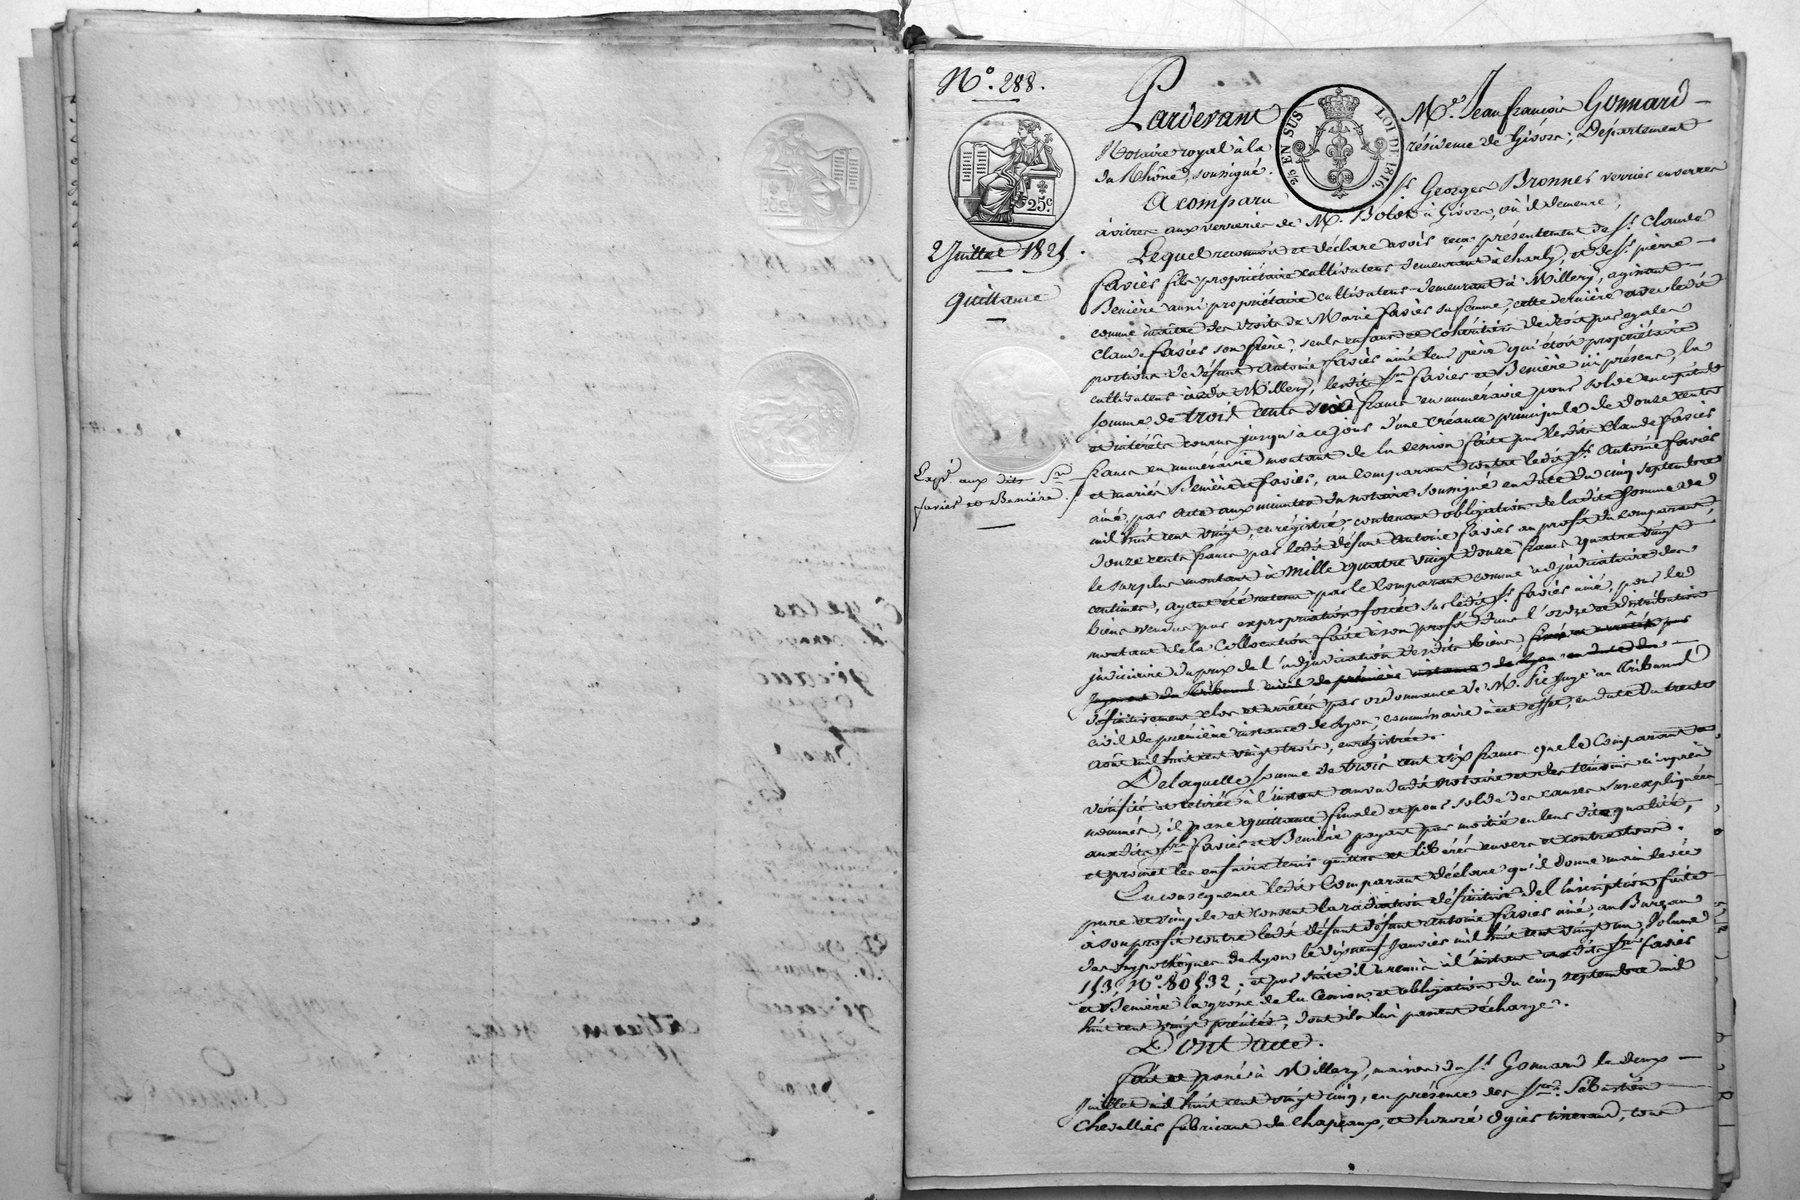 N.° 288.
2 Juillet 1825.
quittance
Expé. aux dits Srs
favier et Benière.
25c.
5/6 EN SUS LOI DE 1816.
Pardevant Me. Jean françois Gonnard
Notaire royal à la résidence de Givors, Département
du Rhône, soussigné.
A comparu sr. Georges Bronnes verrier en verres
à vitres aux verreries de Mr. Bolot à Givors, où il demeure,
Lequel reconnoit et déclare avoir reçu présentement de sr. Claude
favier fils propriétaire cultivateur demeurant à charly, et de sr. pierre
Benière aussi propriétaire cultivateur demeurant à Millery, agissant
comme maître des droits de Marie favier sa femme, cette dernière avec ledit
Claude favier son frère, seuls enfans et cohéritiers de droit par égales
portions de défunt Antoine favier ainé leur père qui étoit propriétaire
cultivateur audit Millery, lesdits srs favier et Benière ici présens, la
somme de trois cents dix francs en numéraire pour solde en capital
et intérêts courus jusqu'à ce jour d'une créance principale de douze cents
francs en numéraire montant de la cession faite par lesdits Claude favier
et mariés Benière et favier, au comparant contre ledit sr. Antoine favier
ainé, par acte aux minutes du notaire soussigné en date du cinq septembre
mil huit cent vingt, enregistré, contenant obligation de ladite somme de
douze cents francs par ledit défunt Antoine favier au profit du comparant,
le surplus montant à mille quatre vingt douze francs quatre vingt
centimes, ayant été retenu par le comparant comme adjudicataire des
biens vendus par expropriation forcée sur ledit sr. favier ainé, pour le
montant de la Collocation faite à son profit dans l'ordre et distribution
judiciaire du prix de l'adjudication desdits biens, fixé et arrêté par
jugement du tribunal civil de première instance de Lyon en date du
définitivement clos et arrêtés par ordonnance de M. juge au tribunal
civil de première instance de Lyon, commissaire à cet effet, en date du trente
août mil huit cent vingt trois, enregistrée.
De laquelle somme de trois cent dix francs que le Comparant a
vérifiée et retirée à l'instant au vu dudit notaire et des témoins ci après
nommés, il passe quittance finale et pour solde des causes sus expliquées
auxdits srs favier et Benière payant par moitié en leurs dites qualités,
et promet les en faire tenir quittes et libérés envers et contre tous.
En conséquence ledit Comparant déclare qu'il donne main levée
pure et simple et consent la radiation définitive de l'inscription faite
à son profit contre ledit défunt défunt antoine favier ainé, au Bureau
des hypothèques de Lyon le dix neuf janvier mil huit cent vingt un, Volume
153, N°. 80532, et par suite il a remis à l'instant auxdits srs favier
et Benière la grosse de la Cession et obligation du cinq septembre mil
huit cent vingt précités, dont ils lui passent décharge.
Dont acte.
fait et passé à Millery, maison du sr. Gonnard le deux
juillet mil huit cent vingt cinq, en présence des srs. Sébastien
Chevallier fabricant de chapeaux, et honoré ogier tisserand, tous